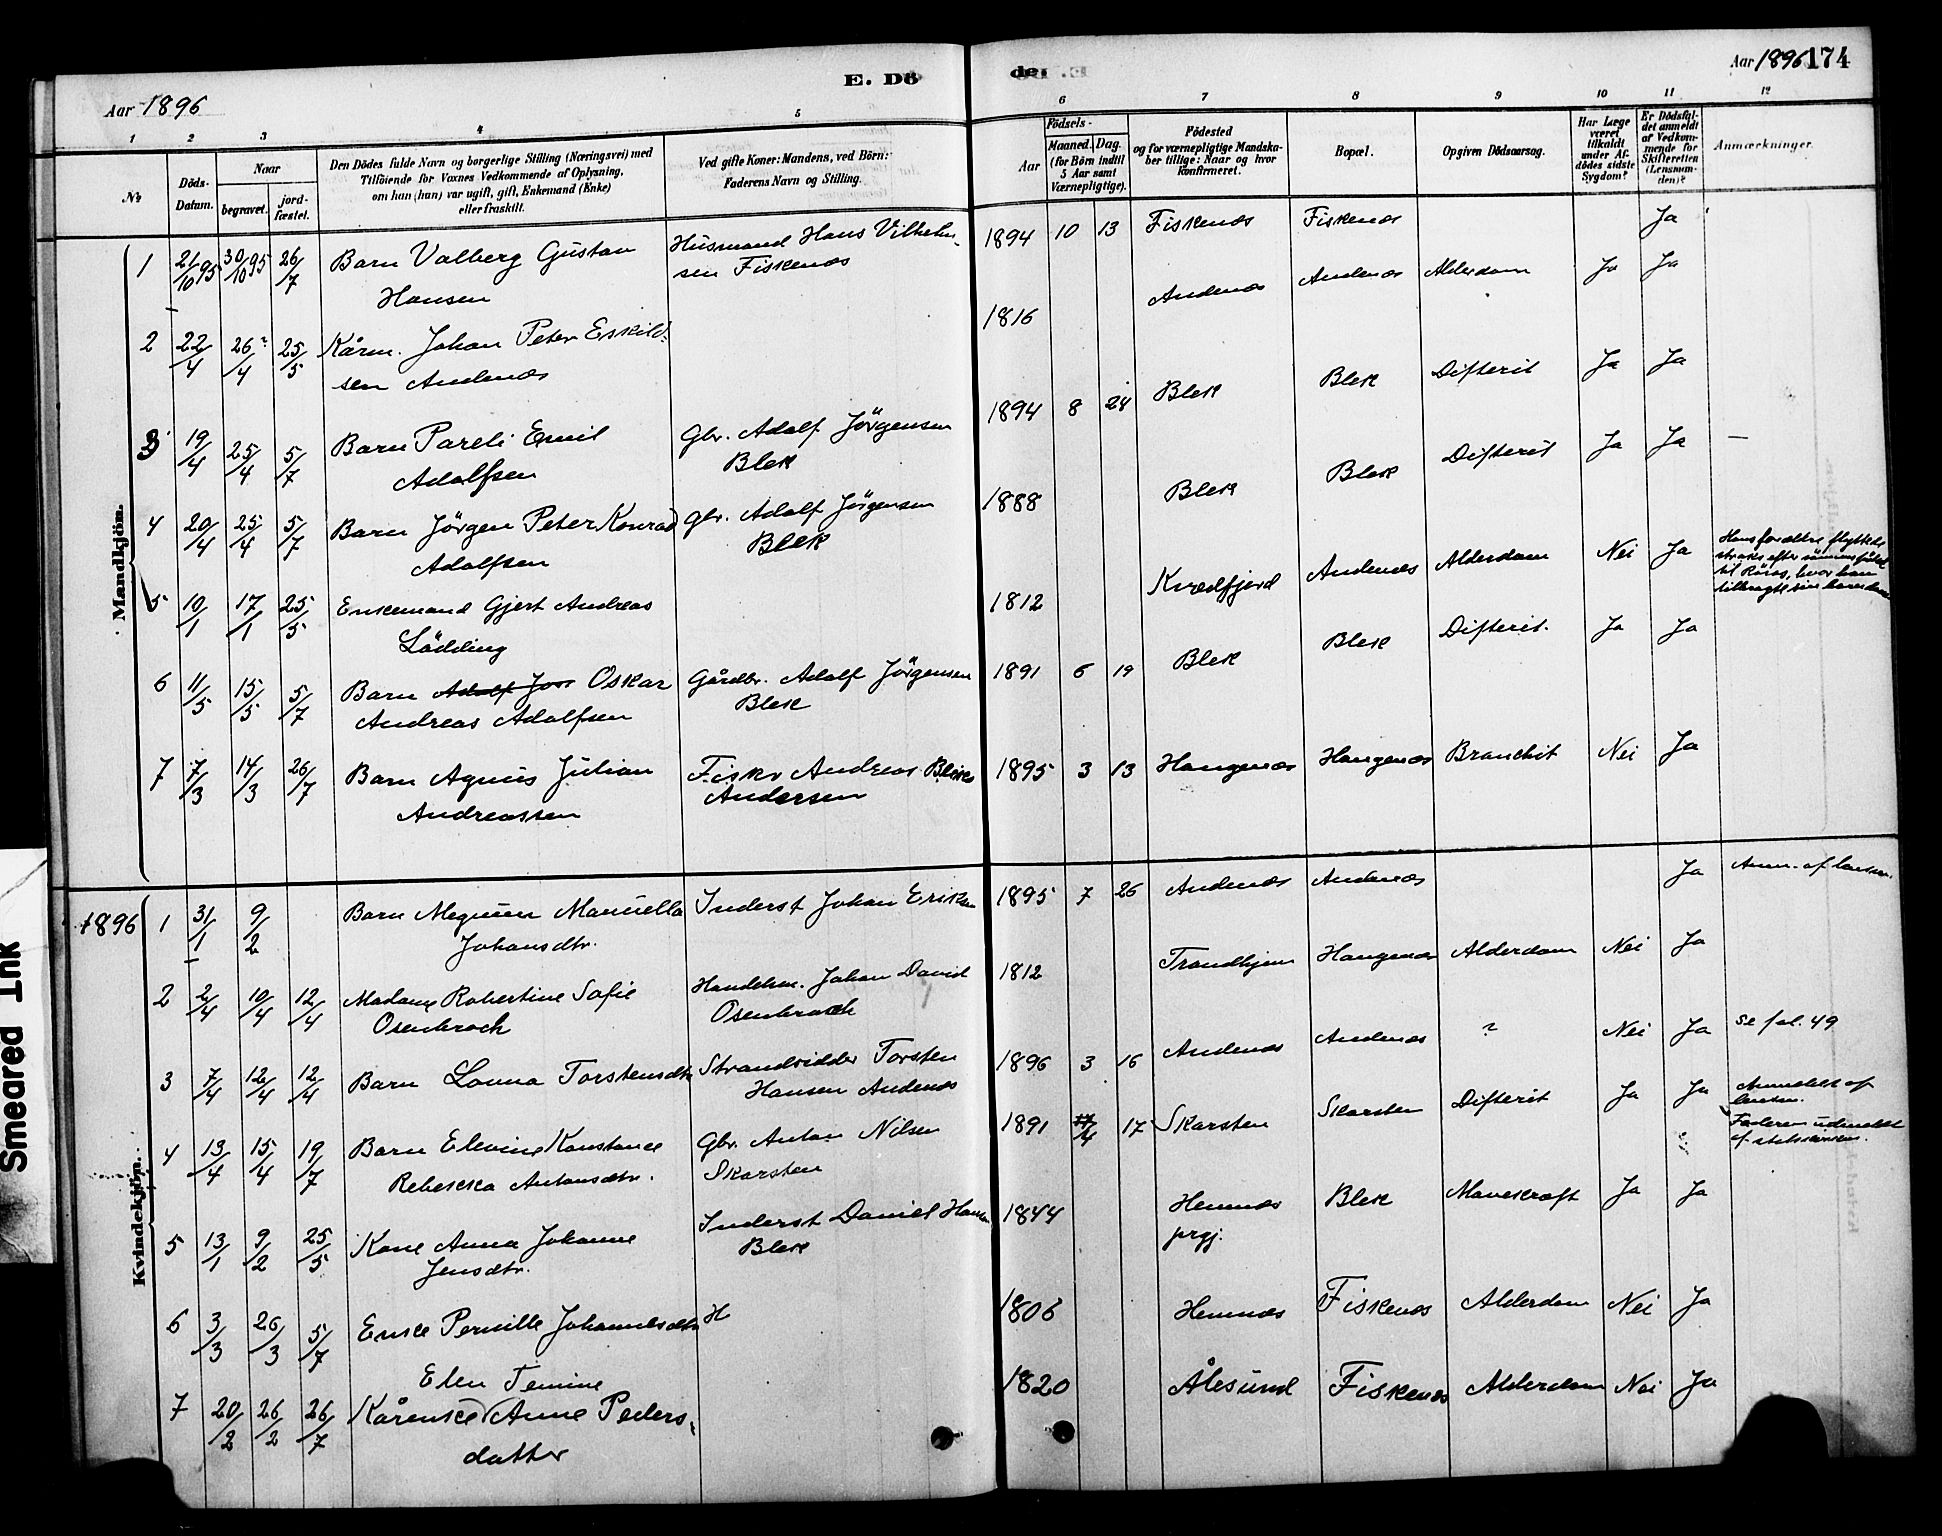 E. Dö
de.
Aar 1896
Aar 1896 174
1 2 3 4 5 6 7 8 9 10 11 12
№
Döds-
Datum.
Naar
begravet.
jord-
fæstet.
Den Dödes fulde Navn og borgerlige Stilling (Næringsvei) med
Tilföiende for Voxnes Vedkommende af Oplysning,
om han (hun) var ugift, gift, Enkemand (Enke)
eller fraskilt.
Ved gifte Koner: Mandens, ved Börn:
Faderens Navn og Stilling.
Födsels-
Aar
Maaned. Dag.
(for Börn indtil
5 Aar samt
Værnepligtige).
Födested
og for værnepligtige Mandska-
ber tillige: Naar og hvor
konfirmeret.
Bopæl.
Opgiven Dödsaarsag.
Har Læge
været
tilkaldt
under Af-
dödes sidste
Sygdom?
Er Dödsfal-
det anmeldt
af Vedkom-
mende for
Skifteretten
(Lensman-
den)?
Anmærkninger.
Mandkjön.
1 21/10 95 30/10 95 26/7 Barn Valberg Gustav Husmand Hans Vilhelm- 1894 10 13 Fiskenæs Fiskenæs Ja
Hansen sen Fiskenæs
2 22/4 26/4 ? 25/5 Kårm. Johan Peter Eskild- 1816 Andenæs Andenæs Alderdom Ja Ja
sen Andenæs
3 19/4 25/4 5/7 Barn Pareli Emil Gbr. Adolf Jörgensen 1894 8 24 Blek Blek Difterit Ja Ja
Adolfsen Blek
4 20/4 25/4 5/7 Barn Jörgen Peter Konrad Gbr. Adolf Jörgensen 1888 Blek Blek Difterit Ja Ja —
Adolfsen Blek
5 10/1 17/1 25/5 Enkemand Gjert Andreas 1812 Kvædfjord Andenæs Alderdom Nei Ja Hans forældre flyttede
Lödding straks efter
til Röros, hvor han
tilbragte sin
6 11/5 15/5 5/7 Barn Adolf Jör Oskar Gårdbr. Adolf Jörgensen 1891 6 19 Blek Blek Difterit. Ja Ja
Andreas Adolfsen Blek
7 7/3 14/3 26/7 Barn Agnus Julian Fisker Andreas Bleik 1895 3 13 Haugenæs Haugenæs Bronchit Nei Ja
Andreassen Andersen
1896
Kvindekjön.
1 31/1 9/2 Barn Megnum Manuella Inderst Johan Eriksen 1895 7 26 Andenæs Andenæs Ja Anm. af lensm.
Johansdtr.
2 2/4 10/4 12/4 Madam Robertine Sofie Handelsm. Johan David 1812 Trondhjem Haugenæs Alderdom Nei Ja
Osenbroch Osenbroch
3 7/4 12/4 12/4 Barn Lovna Torstensdtr Strandsidder Torsten 1896 3 16 Andenæs Andenæs ? Nei Ja Se fol. 49
Hansen Andenæs
4 13/4 15/4 19/7 Barn Elevine Konstance Gbr. Anton Nilsen 1891 17/4 17 Skarsten Skarsten Difterit Ja Ja Anmeldt af
lensm.
Rebekka Antonsdtr. Skarsten Faderen udmeldt
af statskirken.
5 13/1 9/2 25/5 Kone Anna Johanne Inderst Daniel Hansen 1844 Hemnæs Blek Mavekræft Ja Ja
Jensdtr. Blek prgj.
6 3/3 26/3 5/7 Enke Pernille Johannesdtr H 1806 Hemnæs Fiskenæs Alderdom Nei Ja
Elen Temine
7 20/2 26/2 26/7 Kårenke Anne Peders- 1820 Ålesund Fiskenæs Alderdom Nei Ja
datter
Smeared Ink